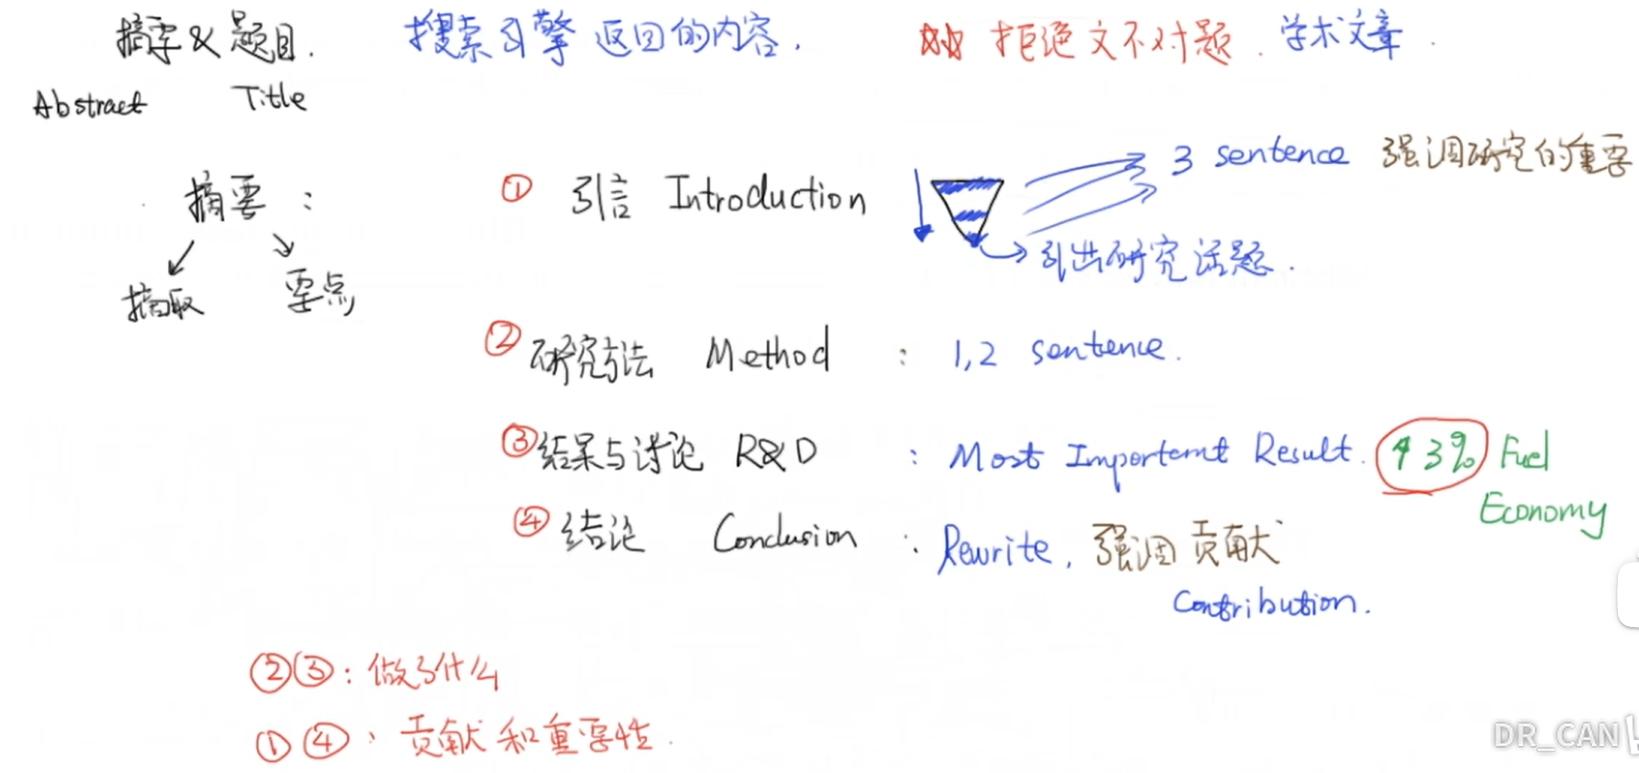 摘要&题目. 搜索引擎返回的内容. 拒绝文不对题. 学术文章.
Abstract Title
摘要:
摘取 要点
① 引言 Introduction 3 sentence 强调研究的重要
引出研究话题.
② 研究方法 Method : 1,2 sentence.
③ 结果与讨论 R&D : Most Importemt Result. ↑3% Fuel
Economy
④ 结论 Conclusion : Rewrite, 强调贡献
Contribution.
②③: 做了什么
①④: 贡献和重要性.
DR_CAN